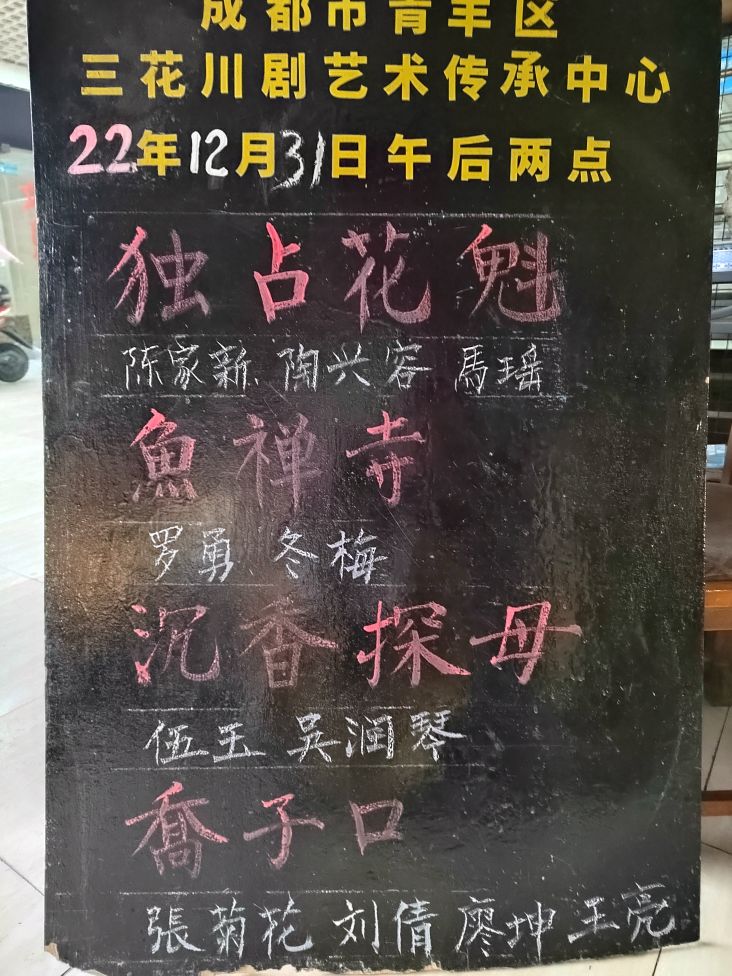 成都市青羊区
三花川剧艺术传承中心
22年12月31日午后两点
独占花魁
陈家新 陶兴容 馬瑶
魚禅寺
罗勇 冬梅
沉香探母
伍王 吴润琴
喬子口
張菊花 刘倩 廖坤 王亮